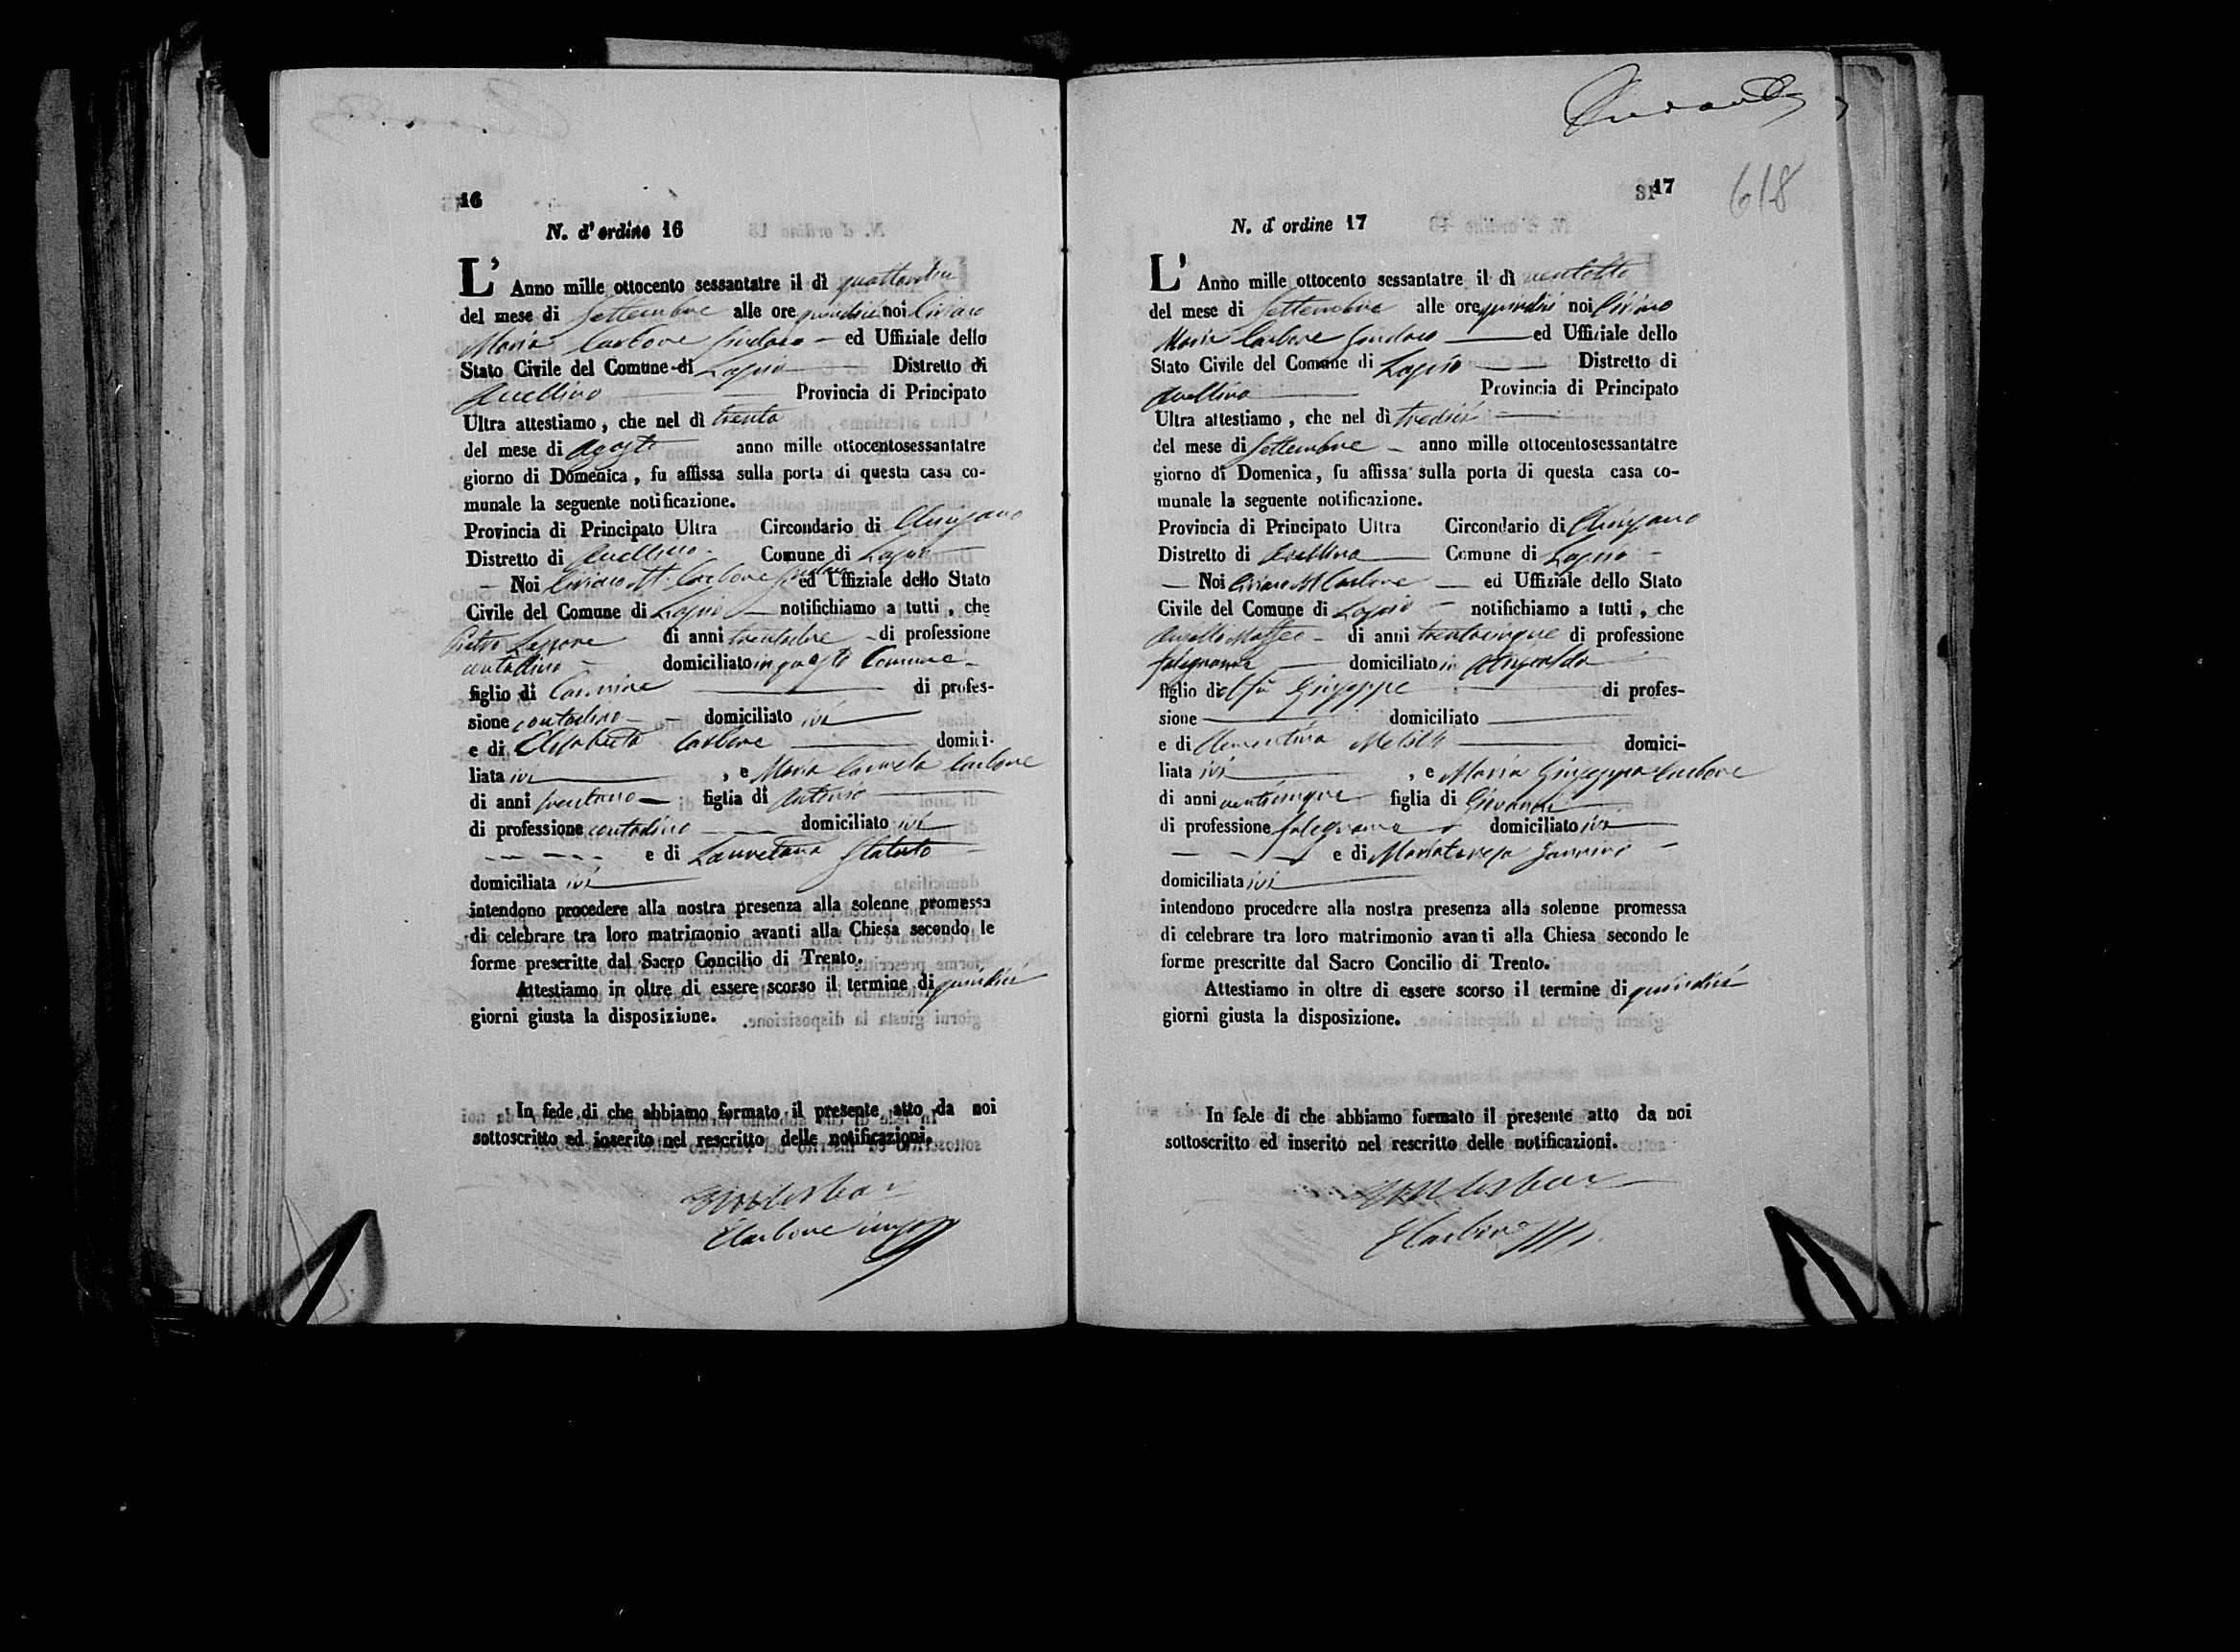 16
N. d' ordine 16
L' Anno mille ottocento sessantatre il dì quattordici
del mese di Settembre alle ore quindici noi Ciriaco
Maria Carbone Sindaco ed Uffiziale dello
Stato Civile del Comune di Lapio Distretto di
Avellino Provincia di Principato
Ultra attestiamo, che nel dì trenta
del mese di Agosto anno mille ottocentosessantatre
giorno di Domenica, fu affissa sulla porta di questa casa co-
munale la seguente notificazione.
Provincia di Principato Ultra Circondario di Chiusano
Distretto di Avellino Comune di Lapio
Noi Ciriaco M. Carbone Sindaco ed Uffiziale dello Stato
Civile del Comune di Lapio notifichiamo a tutti, che
Pietro di anni trentadue di professione
contadino domiciliato in questo Comune
figlio di Carmine di profes-
sione contadino domiciliato ivi
e di Elisabetta Carbone domici-
liata ivi, e Maria Carmela Carbone
di anni figlia di Antonio
di professione contadino domiciliato ivi
e di Lauretana Statuto
domiciliata ivi
intendono procedere alla nostra presenza alla solenne promessa
di celebrare tra loro matrimonio avanti alla Chiesa secondo le
forme prescritte dal Sacro Concilio di Trento.
Attestiamo in oltre di essere scorso il termine di quindici
giorni giusta la disposizione.
In fede di che abbiamo formato il presente atto da noi
sottoscritto ed inserito nel rescritto delle notificazioni.
Carbone
17
618
N. d' ordine 17
L' Anno mille ottocento sessantatre il dì ventotto
del mese di Settembre alle ore quindici noi Ciriaco
Maria Carbone Sindaco ed Uffiziale dello
Stato Civile del Comune di Lapio Distretto di
Avellino Provincia di Principato
Ultra attestiamo, che nel dì tredici
del mese di Settembre anno mille ottocentosessantatre
giorno di Domenica, fu affissa sulla porta di questa casa co-
munale la seguente notificazione.
Provincia di Principato Ultra Circondario di Chiusano
Distretto di Avellino Comune di Lapio
Noi Ciriaco M Carbone ed Uffiziale dello Stato
Civile del Comune di Lapio notifichiamo a tutti, che
Matteo di anni trentacinque di professione
falegname domiciliato in
figlio di fu Giuseppe di profes-
sione domiciliato
e di Clementina domici-
liata ivi, e Maria Giuseppa Carbone
di anni venticinque figlia di Giovanni
di professione falegname domiciliato ivi
e di Mariateresa
domiciliata ivi
intendono procedere alla nostra presenza alla solenne promessa
di celebrare tra loro matrimonio avanti alla Chiesa secondo le
forme prescritte dal Sacro Concilio di Trento.
Attestiamo in oltre di essere scorso il termine di quindici
giorni giusta la disposizione.
In fede di che abbiamo formato il presente atto da noi
sottoscritto ed inserito nel rescritto delle notificazioni.